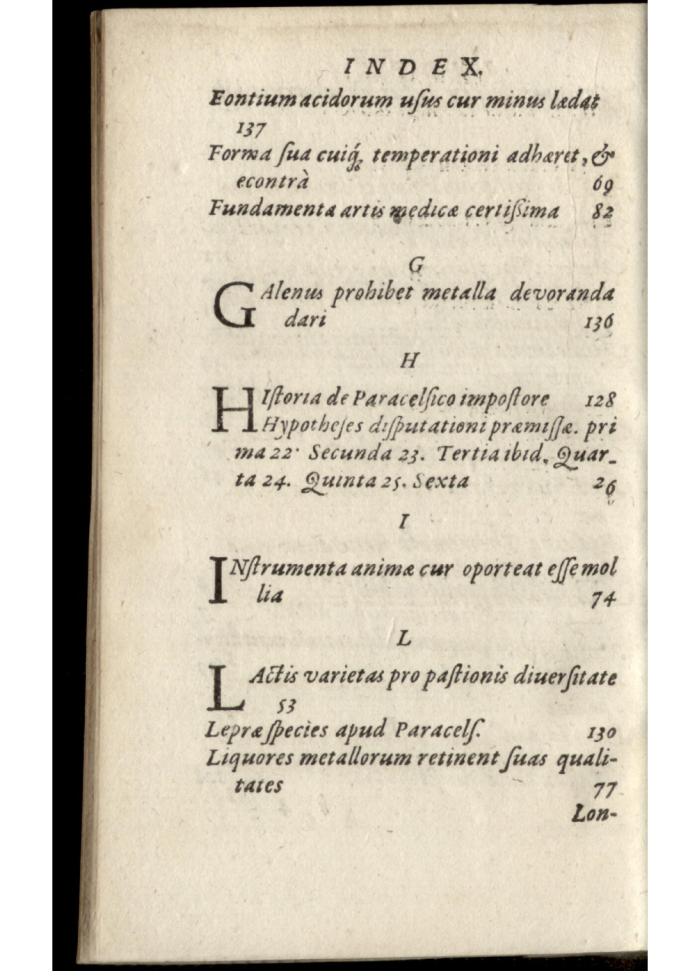 INDEX.
Fontium acidorum uſus cur minus lædat
137
Forma ſua cuiq́; temperationi adhæret, &
econtrà 69
Fundamenta artis medicæ certiſsima 82
G
GAlenus prohibet metalla devoranda
dari 136
H
HIſtoria de Paracelſico impoſtore 128
Hypotheſes diſputationi præmiſſæ. pri
ma 22. Secunda 23. Tertia ibid. Quar-
ta 24. Quinta 25. Sexta 26
I
INſtrumenta animæ cur oporteat eſſe mol
lia 74
L
LActis varietas pro paſtionis diuerſitate
53
Lepræ ſpecies apud Paracelſ. 130
Liquores metallorum retinent ſuas quali-
tates 77
Lon-